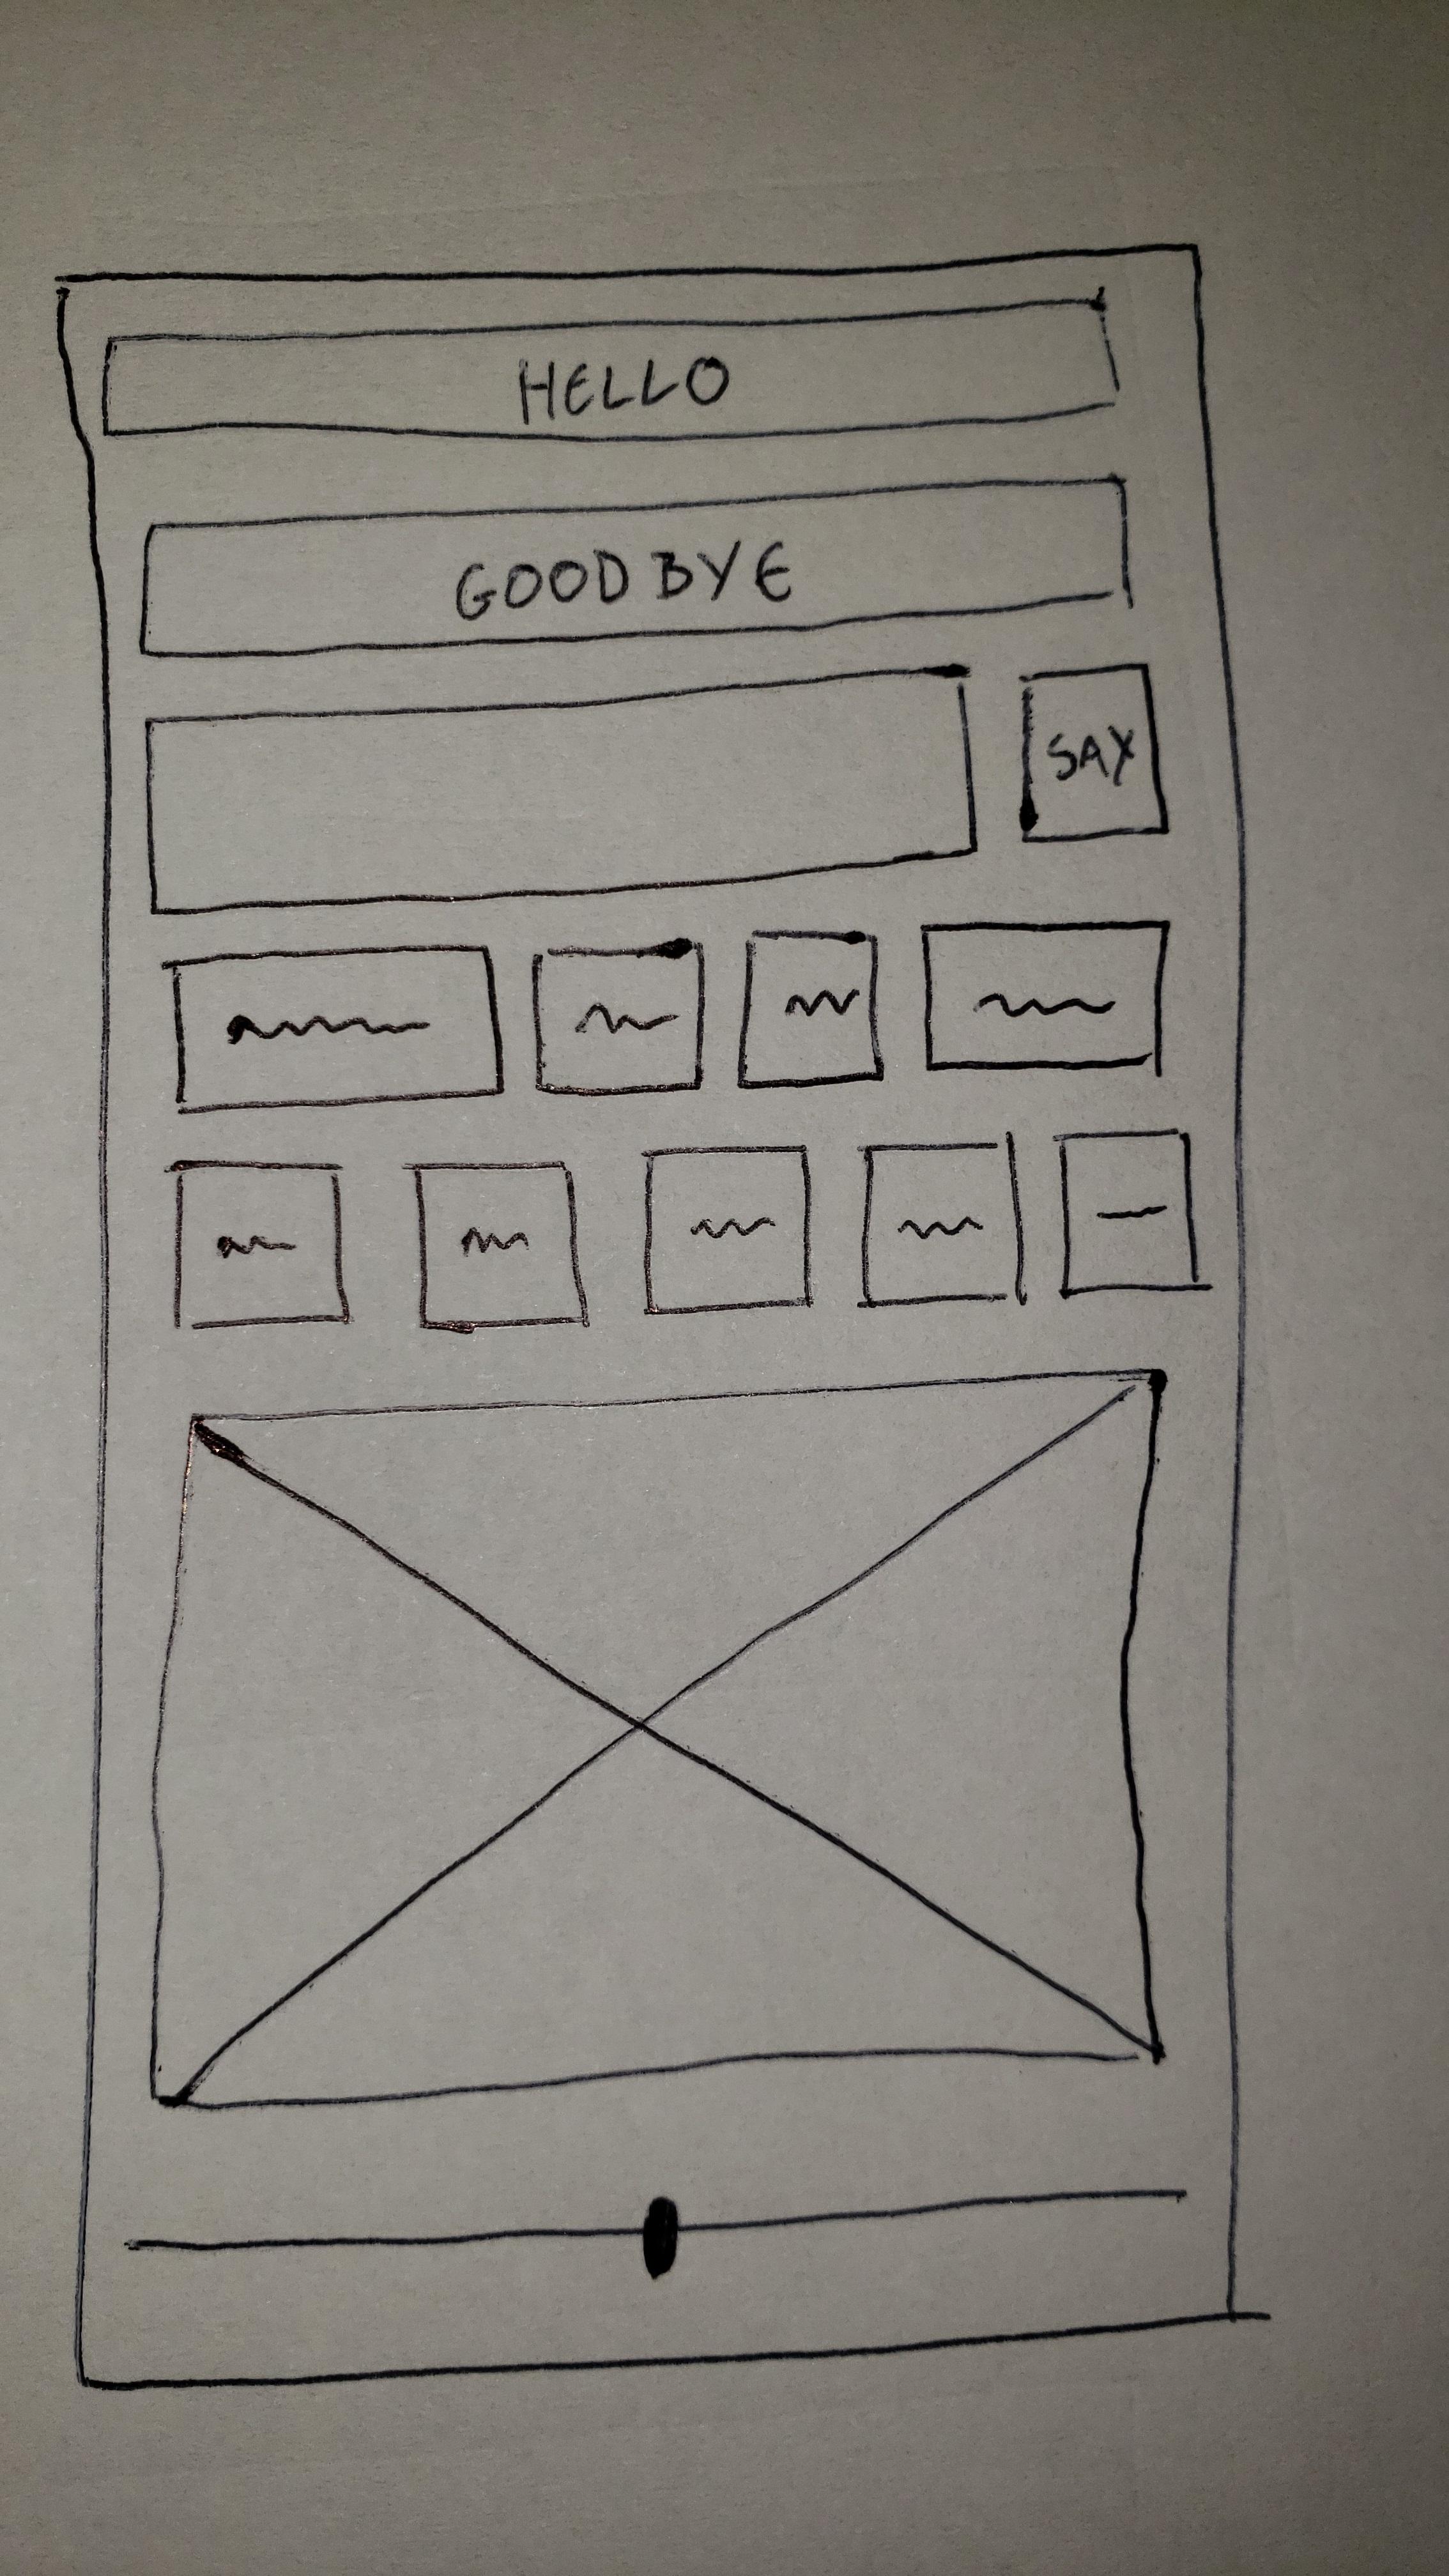 HELLO
GOODBYE
SAY